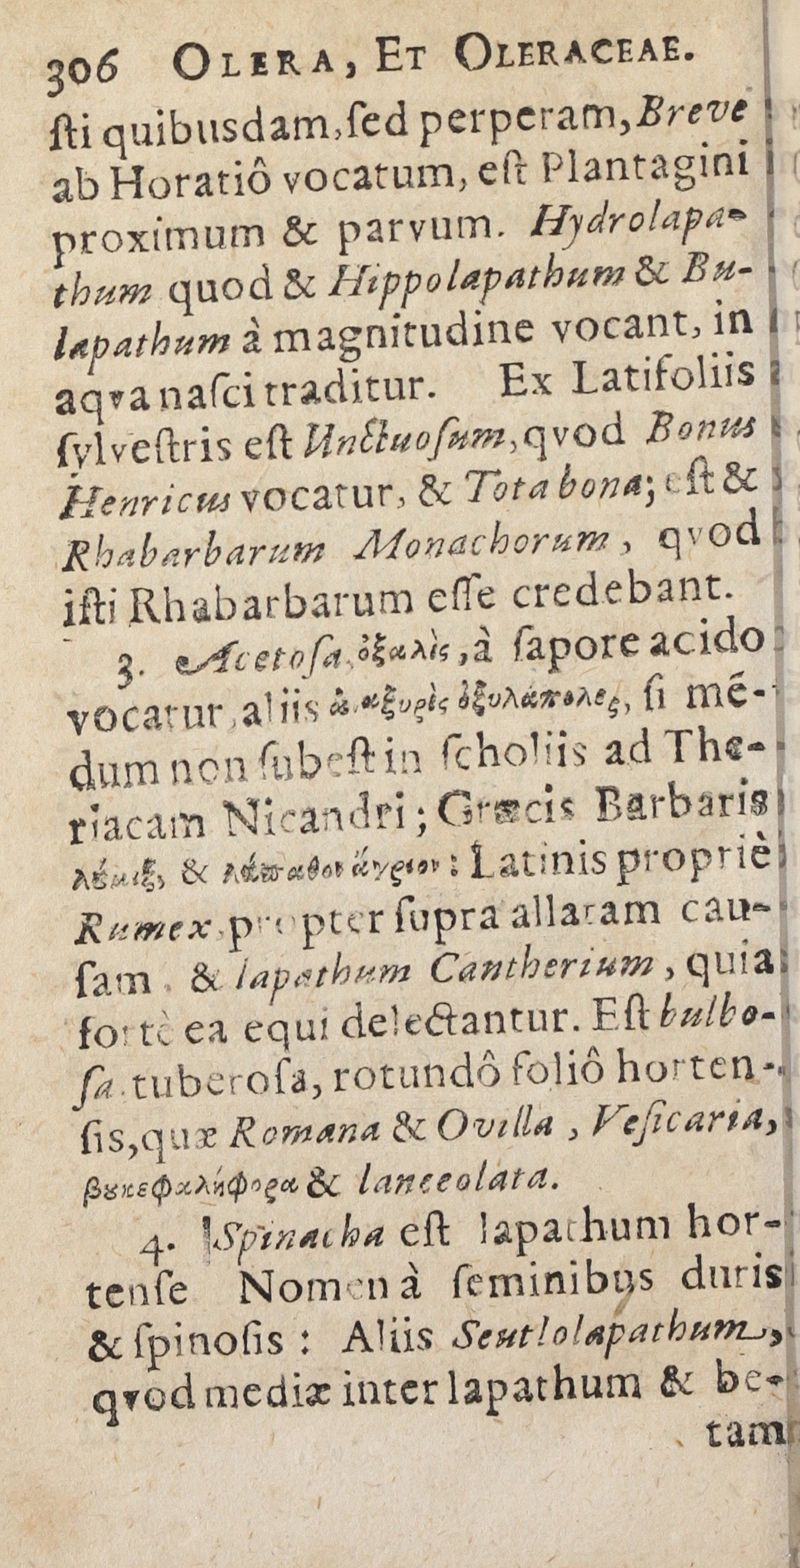 306 OLERA, ET OLERACEAE.
ſti quibusdam, ſed perperam, Breve
ab Horatiô vocatum, eſt Plantagini
proximum & parvum. Hydrolapa-
thum quod & Hippolapathum & Bu-
lapathum à magnitudine vocant, in
aqva naſci traditur. Ex Latifoliis
ſylveſtris eſt Unctuoſum, qvod Bonus
Henricus vocatur, & Tota bona; eſt &
Rhabarbarum Monachorum, qvod
iſti Rhabarbarum eſſe credebant.
3. Acetoſa, ὀξαλὶς, à ſapore acido
vocatur, aliis ſi mē-
dum non ſubeſt in ſcholiis ad The-
riacam Nicandri; Græcis Barbaris
& λάπαθον ἄγριον: Latinis propriè
Rumex propter ſupra allatam cau-
ſam, & lapathum Cantherium, quia
fortè ea equi delectantur. Eſt bulbo-
ſa tuberoſa, rotundô foliô horten-
ſis, quæ Romana & Ovilla, Veſicaria,
βουκεφαληφόρα & lanceolata.
4. Spinacha eſt lapathum hor-
tenſe Nomen à ſeminibus duris
& ſpinoſis: Aliis Seutlolapathum,
qvod mediæ inter lapathum & be-
tam